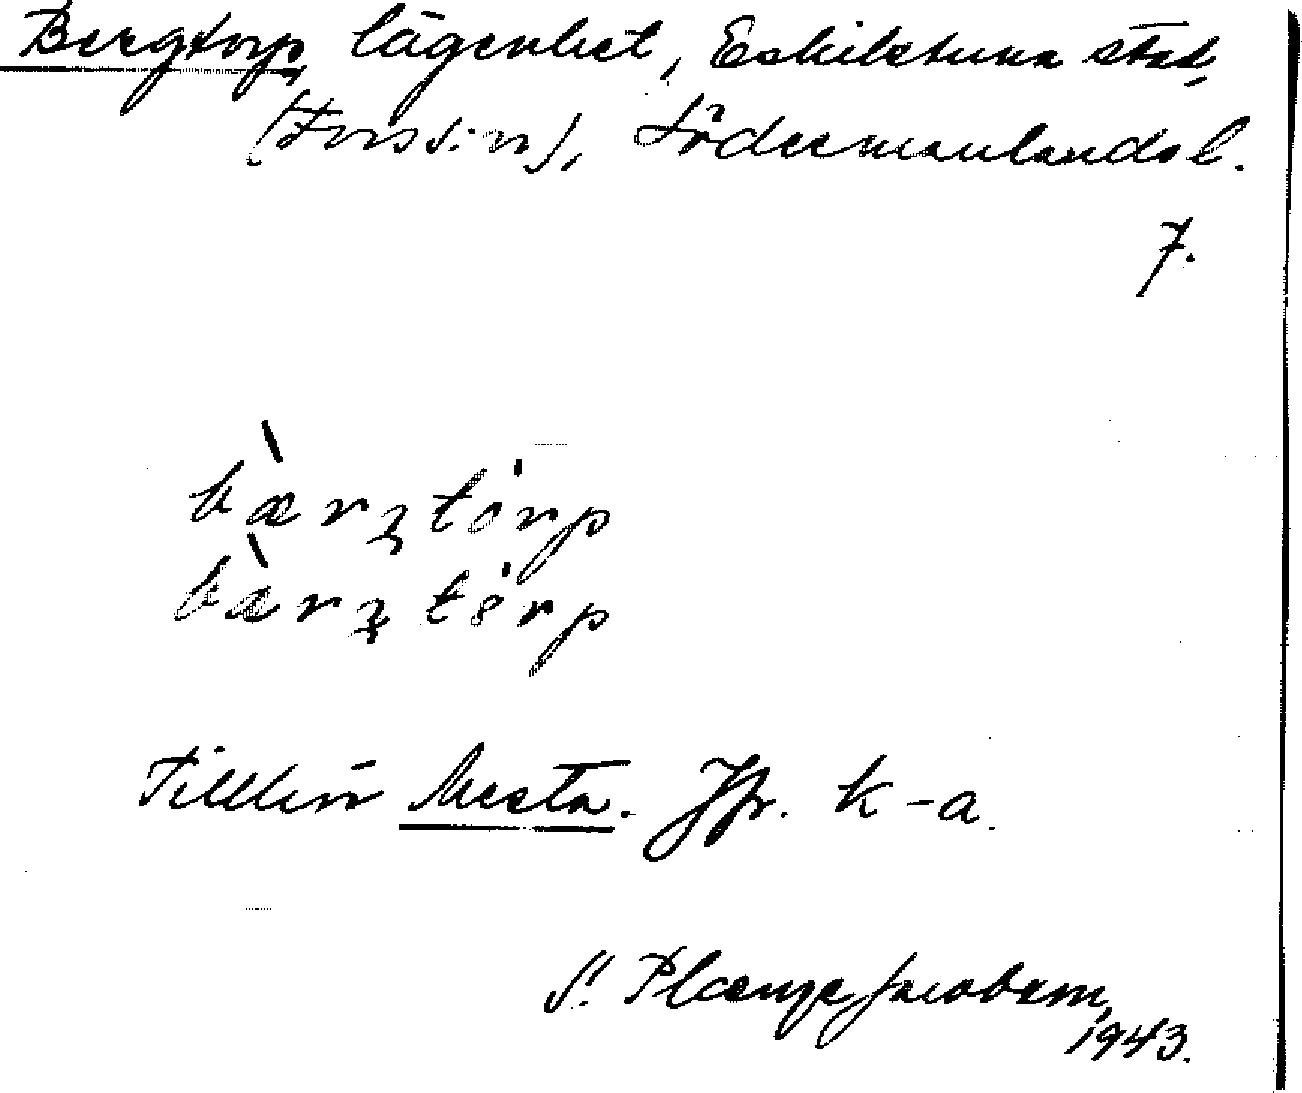 Bergtorp, lägenhet, Eskilstuna stad,
(Fors s:n), Södermanlands l.
7.
bærtorp
bærtorp
Tillhör Mesta. Jfr. k-a.
S. Plænge Jacobson,
1943.